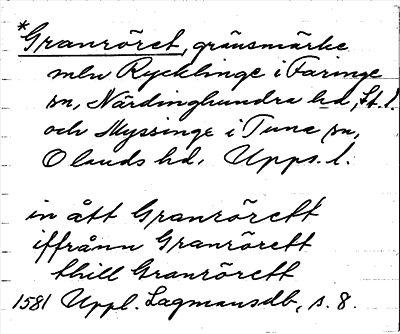 *Granröret, gränsmärke
mln Rycklinge i Faringe
sn, Närdinghundra hd, St. l.
och Myssinge i Tuna sn,
Olands hd. Upps. l.
in ått Granrörett
iffrånn Granrörett
thill Granrörett
1581 Uppl. Lagmansdb, s. 8.